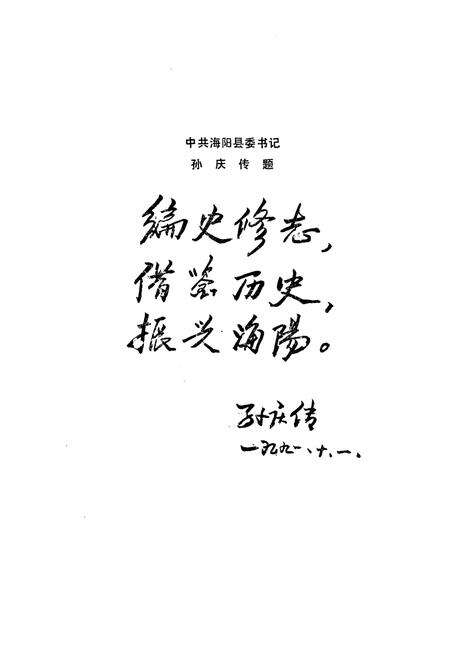 中共海阳县委书记
孙庆传题
编史修志,
借鉴历史,
振兴海陽。
孙庆传
一九九一、十、一。